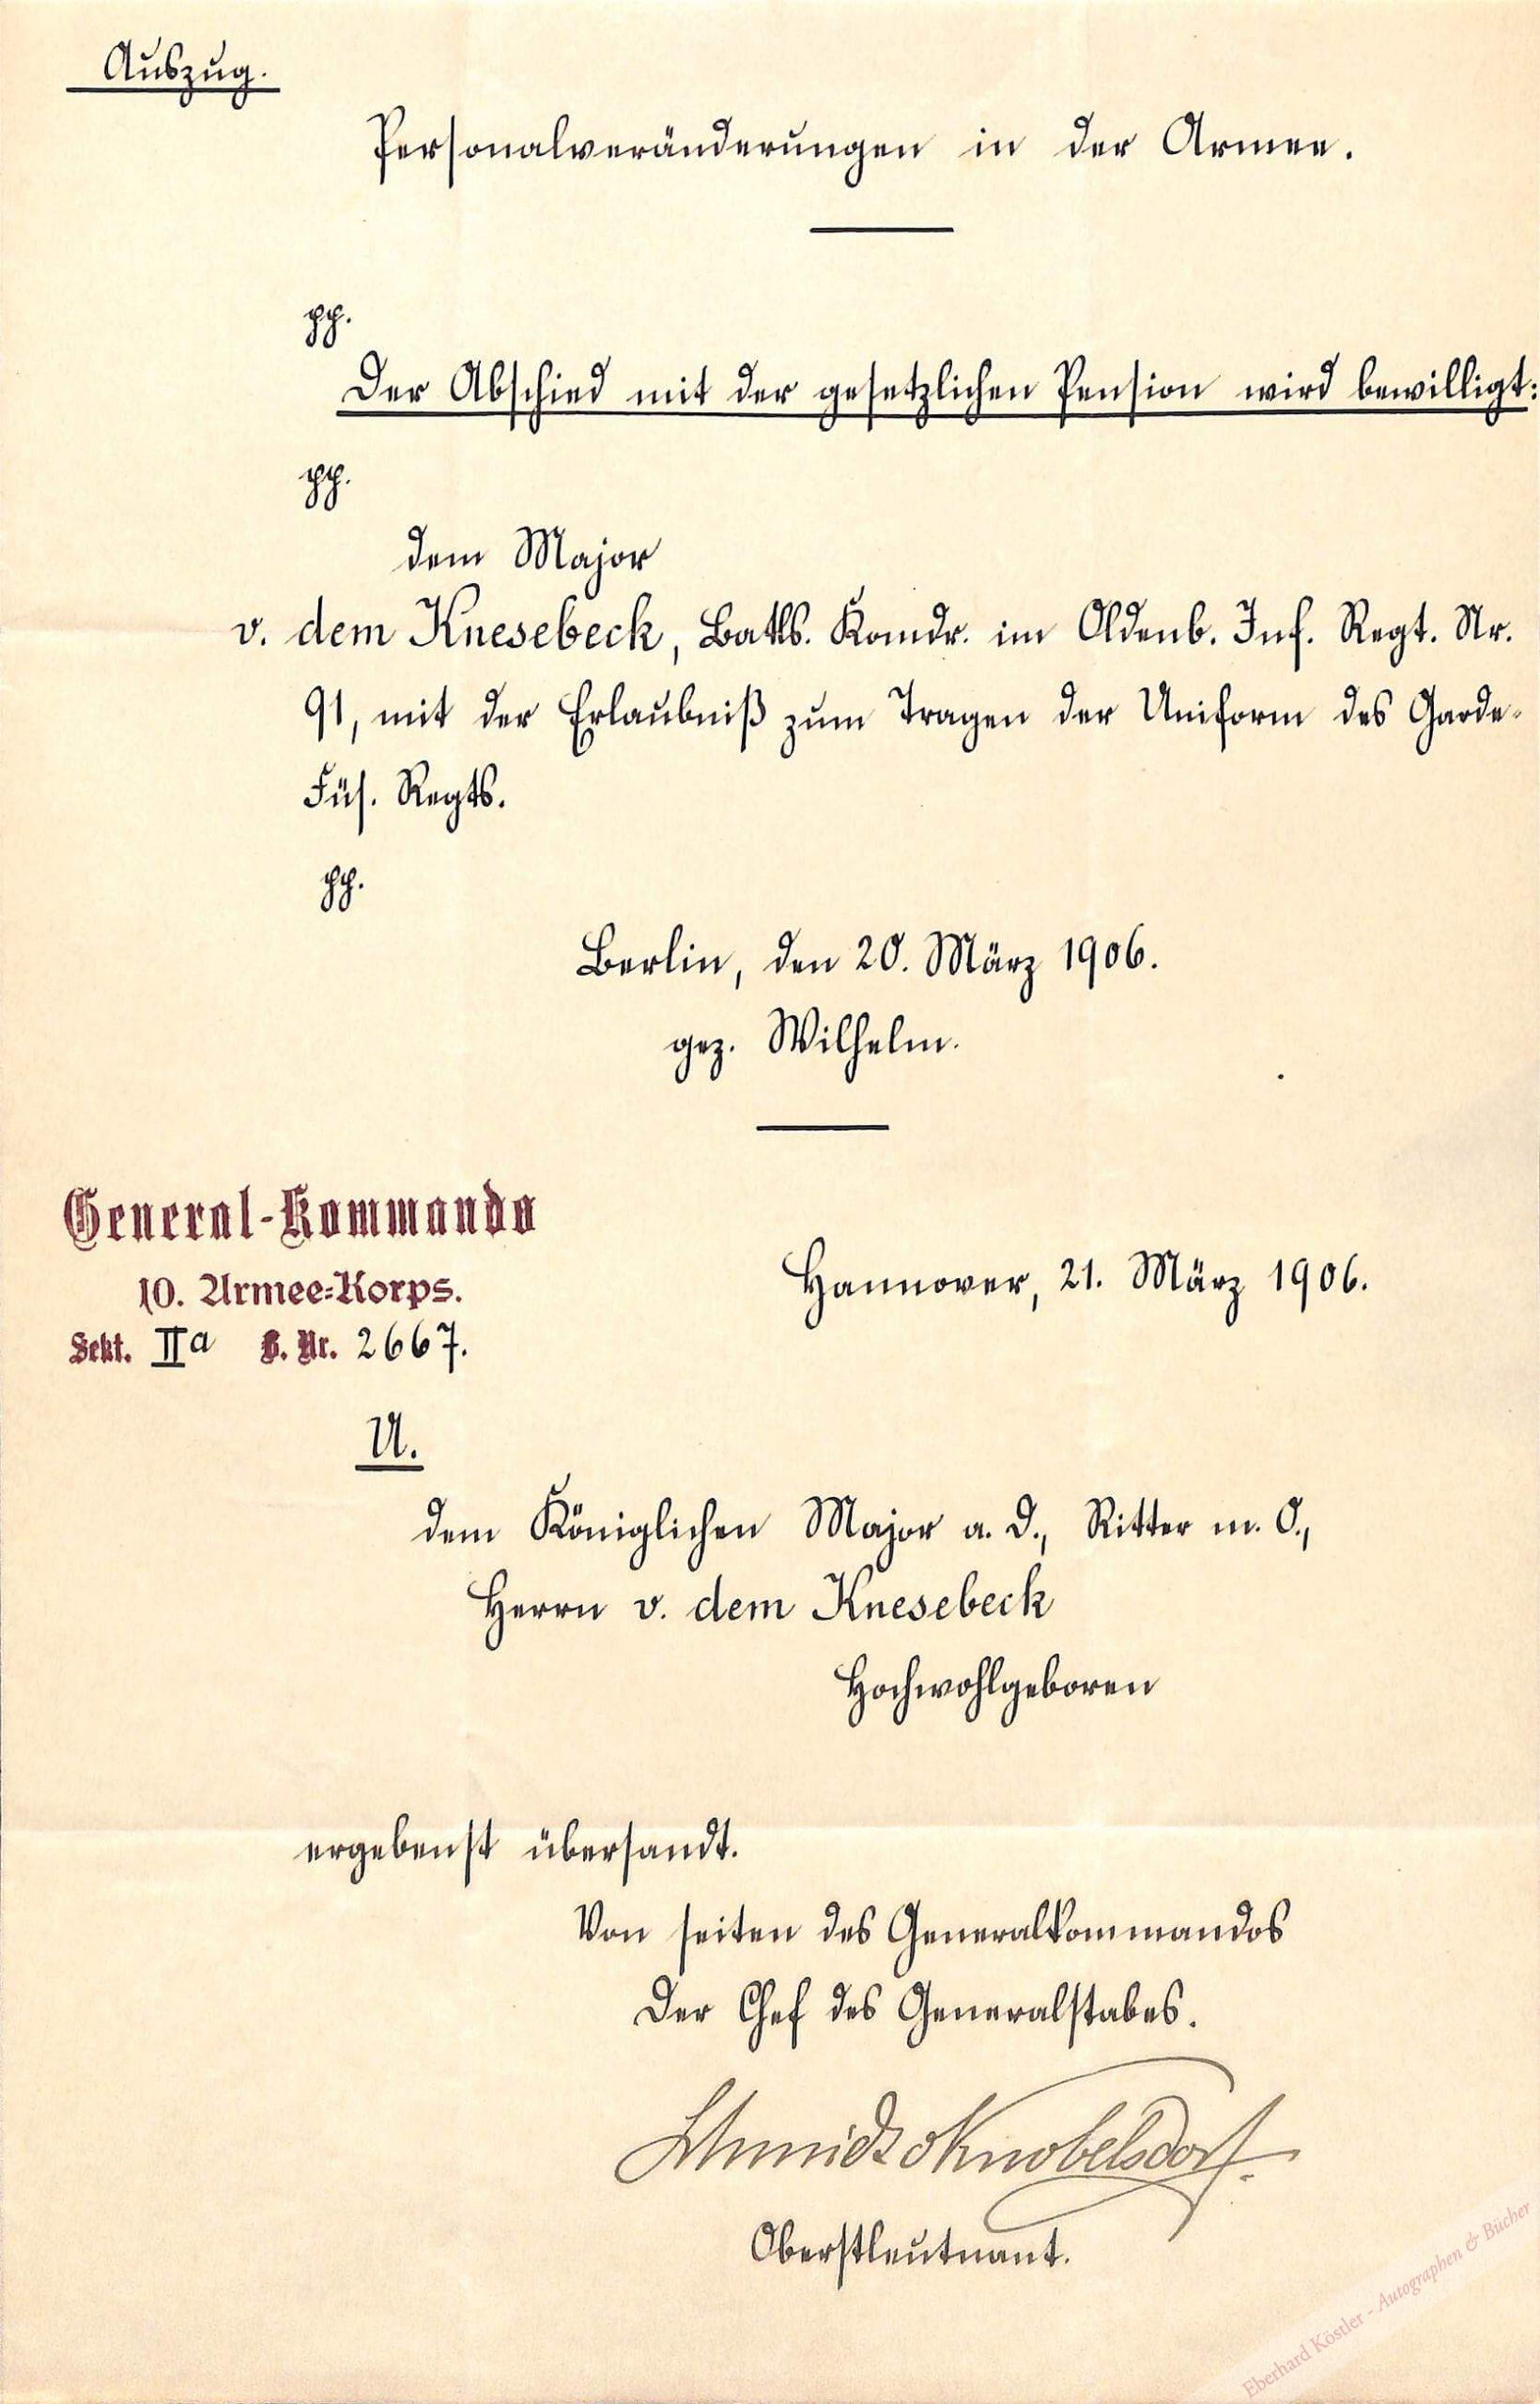 Auszug.
Personalveränderungen in der Armee.
pp.
Der Abschied mit der gesetzlichen Pension wird bewilligt:
pp.
dem Major
v. dem Knesebeck, Batls. Komdr. im Oldenb. Inf. Regt. Nr.
91, mit der Erlaubniß zum Tragen der Uniform des Garde-
Füs. Regts.
pp.
Berlin, den 20. März 1906.
gez. Wilhelm.
General-Kommando
10. Armee-Korps.
Hannover, 21. März 1906.
Sekt. IIa B. Nr. 2667.
U.
dem Königlichen Major a. D., Ritter m. O.,
Herrn v. dem Knesebeck
Hochwohlgeboren
ergebenst übersandt.
Von seiten des Generalkommandos
Der Chef des Generalstabes.
Schmidt v Knobelsdorf.
Oberstleutnant.
Eberhard Köstler - Autographen & Bücher